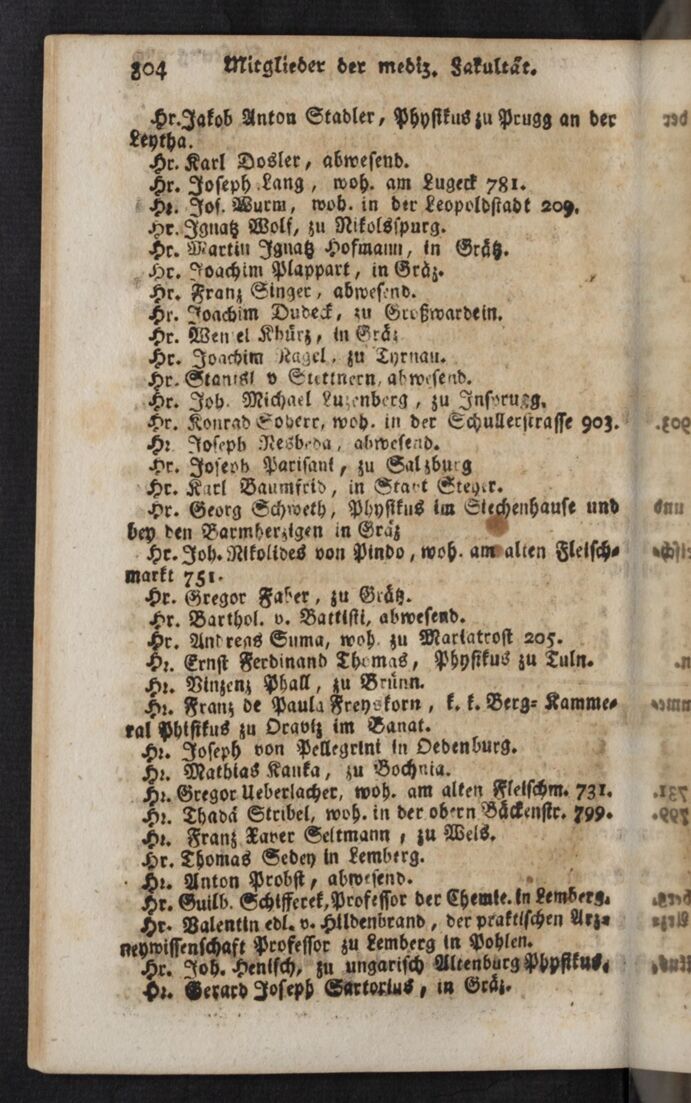 304 Mitglieder der mediz. Fakultät.
Hr. Jakob Anton Stadler, Physikus zu Prugg an der
Leytha.
Hr. Karl Dosler, abwesend.
Hr. Joseph Lang, woh. am Lugeck 781.
Hr. Jos. Wurm, woh. in der Leopoldstadt 209.
Hr. Ignatz Wolf, zu Nikolsspurg.
Hr. Martin Ignatz Hofmann, in Grätz.
Hr. Joachim Plappart, in Gräz.
Hr. Franz Singer, abwesend.
Hr. Joachim Dudeck, zu Großwardein.
Hr. Wenzel Khürz, in Gräz
Hr. Joachim Nagel, zu Tyrnau.
Hr. Stanisl v Stettnern, abwesend.
Hr. Joh. Michael Luzenberg, zu Insprugg.
Hr. Konrad Soherr, woh. in der Schullerstrasse 903.
Hr. Joseph Nesbeda, abwesend.
Hr. Joseph Parisani, zu Salzburg
Hr. Karl Baumfrid, in Stadt Steyer.
Hr. Georg Schweth, Physikus im Siechenhause und
bey den Barmherzigen in Gräz
Hr. Joh. Nikolides von Pindo, woh. am alten Fleisch-
markt 751.
Hr. Gregor Faber, zu Grätz.
Hr. Barthol. v. Battisti, abwesend.
Hr. Andreas Suma, woh. zu Mariatrost 205.
Hr. Ernst Ferdinand Thomas, Physikus zu Tuln.
Hr. Vinzenz Phall, zu Brünn.
Hr. Franz de Paula Freyskorn, k. k. Berg- Kamme-
ral Phisikus zu Oraviz im Banat.
Hr. Joseph von Pellegrini in Oedenburg.
Hr. Mathias Kauka, zu Bochnia.
Hr. Gregor Ueberlacher, woh. am alten Fleischm. 731.
Hr. Thadä Stribel, woh. in der obern Bäckenstr. 799.
Hr. Franz Xaver Seltmann, zu Wels.
Hr. Thomas Sedey in Lemberg.
Hr. Anton Probst, abwesend.
Hr. Guilb. Schifferek, Professor der Chemie. in Lemberg.
Hr. Valentin edl. v. Hildenbrand, der praktischen Arz-
neywissenschaft Professor zu Lemberg in Pohlen.
Hr. Joh. Henisch, zu ungarisch Altenburg Physikus.
Hr. Gerard Joseph Sartorius, in Gräz.